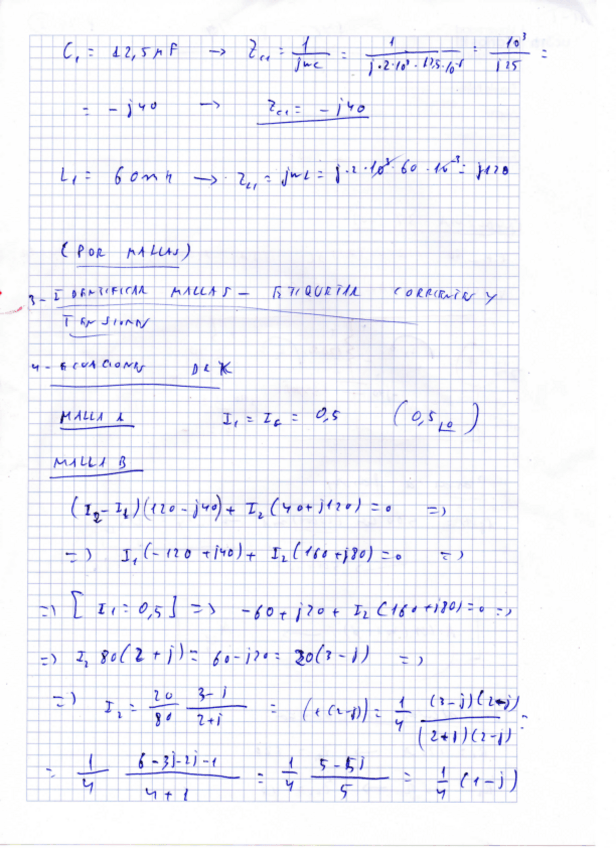 C₁ = 12,5 μF → Z_C1 = 1/jωC = 1/(j·2·10³·12,5·10⁻⁶) = 10³/j25 =
= -j40 → Z_C1 = -j40
L₁ = 60mH → Z_L1 = jωL = j·2·10³·60·10⁻³ = j120
(POR MALLAS)
3- IDENTIFICAR MALLAS - ETIQUETAR CORRIENTES Y
TENSIONES
4- ECUACIONES DE K
MALLA A I₁ = I_G = 0,5 (0,5∠0)
MALLA B
(I₂-I₁)(120-j40) + I₂(40+j120) = 0 =>
=> I₁(-120+j40) + I₂(160+j80) = 0 =>
=> [I₁ = 0,5] => -60+j20 + I₂(160+j80) = 0 =>
=> I₂ 80(2+j) = 60-j20 = 20(3-j) =>
=> I₂ = 20/80 (3-j)/(2+j) = (×(2-j)) = 1/4 (3-j)(2-j)/(2+j)(2-j) =
= 1/4 (6-3j-2j-1)/(4+1) = 1/4 (5-5j)/5 = 1/4 (1-j)